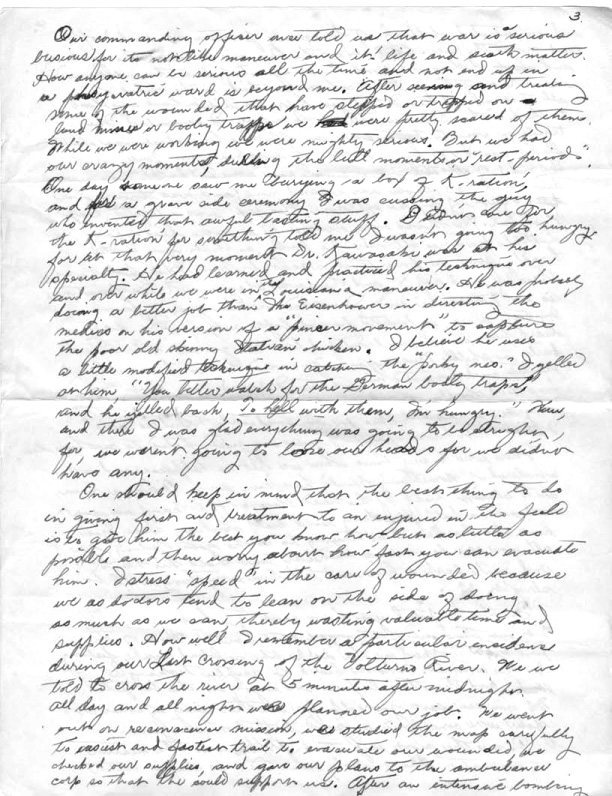 3.
Our commanding officer once told us that war is a serious
busious for its not like maneuver and it's life and death matter.
How anyone can be serious all the time and not end up in
a psychiatric ward is beyond me. After seeing and treating
some of the wounded that have stepped or tripped on
land mines or booby traps we were pretty scared of them.
While we were working we were mighty serious. But we had
our crazy moments, during the lull moments or "rest-periods".
One day someone saw me burying a box of K-ration,
and a grave side ceremony I was cussing the guy
who invented that awful tasting stuff. for
the K-ration for something told me I wasn't going too hungry
for at that very moment Dr. Kawasaki was at his
specialty. He had learned and practiced his technique over
and over while we were in the Louisiana maneuver. He was probably
doing a better job than Eisenhower in directing the
medics on his version of a "pincer movement" to capture
the poor old skinny Italian chicken. I believe he uses
a little modified technique in catching the "porky neo." I yelled
at him, "You better watch for the German booby traps",
and he yelled back, "To hell with them, I'm hungry."
and there I was glad everything was going to be straight,
for we weren't going to loose our heads for we didn't
have any.
One should keep in mind that the best thing to do
in giving first aid treatment to an injured in the field
is to give him the best you know how but as little as
possible and then worry about how fast you can evacuate
him. I stress "speed" in the care of wounded because
we as doctors tend to lean on the side of doing
as much as we can thereby wasting valuable time and
supplies. How well I remember a particular incidence
during our last crossing of the Volturno River. We were
told to cross the river at 5 minutes after midnight.
All day and all night we planned our job. We went
out on reconnaissance mission, we studied the map carefully
to easiest and fastest trail to evacuate our wounded, we
checked our supplies, and gave our plans to the ambulance
corp so that the could support us. After an intensive bombing